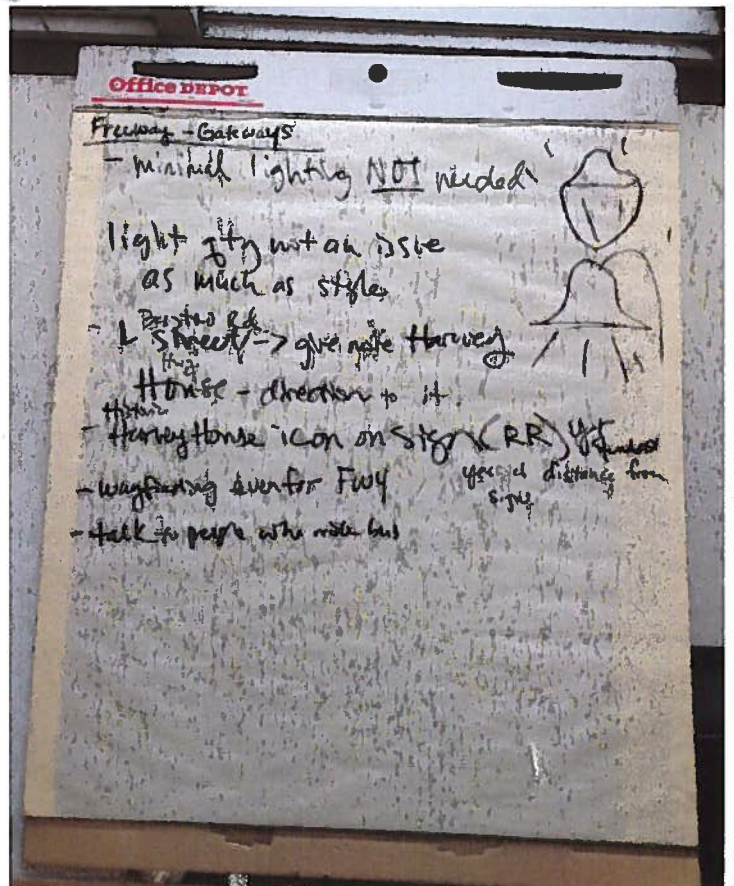 Office DEPOT
Freeway - Gateways
- minimal lighting NOT needed
light qty not an issue
as much as style
Barstow Rd
- L Street -> give note Harvey
House - direction to it
Historic
- Harvey House icon on sign (RR)
distance from
sign
- wayfinding even for Fwy
- talk to people who ride bus